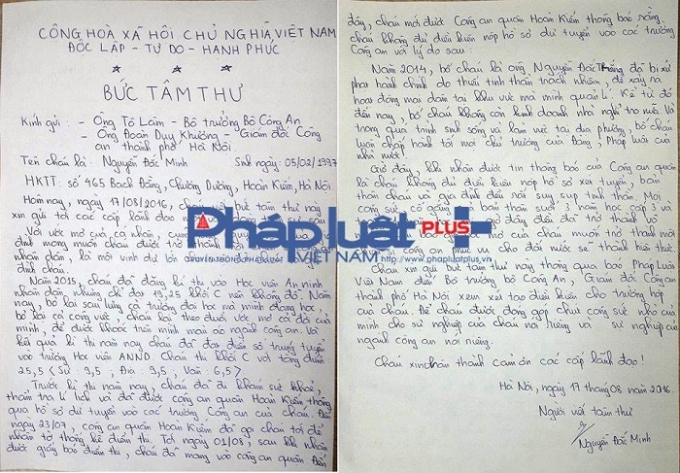 CỘNG HÒA XÃ HỘI CHỦ NGHĨA VIỆT NAM
ĐỘC LẬP - TỰ DO - HẠNH PHÚC
BỨC TÂM THƯ
Kính gửi: - Ông Tô Lâm - Bộ trưởng Bộ Công An
- Ông Đoàn Duy Khương - Giám đốc Công
an thành phố Hà Nội
Tên cháu là: Nguyễn Đức Minh Sinh ngày: 05/02/1997
HKTT: số 465 Bạch Đằng, Chương Dương, Hoàn Kiếm, Hà Nội
Hôm nay, ngày 17/08/2016, cháu viết bút tâm thư này
xin gửi tới các cấp lãnh đạo
Với ước mơ của cá nhân
mong muốn cháu được trở
nhân dân, là một vinh dự lớn
đình cháu.
Năm 2015, cháu đã đăng kí thi vào Học viện An ninh
nhân dân nhưng chỉ đạt 19,25 khối C nên không đỗ. Năm
nay,
mình, để được khoác trên mình màu áo ngành công an. Và
kết quả kì thi năm nay cháu đã đạt điểm số trúng tuyển
vào trường Học viện ANND. Cháu thi khối C với tổng điểm
25,5 (Sử: 9,5; Địa: 9,5; Văn: 6,5)
Trước kì thi năm nay, cháu đã đi khám sức khoẻ,
thẩm tra lí lịch và đã được công an quận Hoàn Kiếm thông
qua hồ sơ dự tuyển vào các trường Công an của cháu. Đến
ngày 23/07, công an quận Hoàn Kiếm đã gọi cháu tới để
nhận tờ thống kê điểm thi. Tới ngày 01/08, sau khi nhận
được giấy báo điểm thi, cháu đã mang vào công an quận. Đến
đây, cháu mới được Công an quận Hoàn Kiếm thông báo rằng
cháu không đủ điều kiện nộp hồ sơ dự tuyển vào các trường
Công an với lý do sau:
Năm 2014, bố cháu là ông Nguyễn Đức Thắng đã bị xử
phạt hành chính do thiếu tinh thần trách nhiệm, để xảy ra
hoạt động mại dâm tại khu vực mà mình quản lí. Kể từ đó
đến nay, bố cháu không còn kinh doanh nhà nghỉ trọ nữa. Và
trong quá trình sinh sống và làm việc tại địa phương, bố cháu
luôn chấp hành tốt mọi chủ trương của Đảng, Pháp luật của
nhà nước.
Giờ đây, khi nhận được tin thông báo của Công an quận
là cháu không đủ điều kiện nộp hồ sơ xét tuyển, bản
thân cháu và gia đình đều rất suy sụp tinh thần. Mọi
công sức cố gắng của bản thân
của cháu muốn trở thành một
công an phục vụ cho đất nước sẽ
Cháu xin gửi bút tâm thư này thông qua báo Pháp luật
Việt Nam đến Bộ trưởng Bộ Công An, Giám đốc Công an
thành phố Hà Nội xem xét tạo điều kiện cho trường hợp
của cháu. Để cháu được đóng góp chút công sức nhỏ của
mình cho sự nghiệp của cháu nói riêng và sự nghiệp của
ngành công an nói chung.
Cháu xin chân thành cảm ơn các cấp lãnh đạo!
Hà Nội, ngày 17 tháng 08 năm 2016.
Người viết tâm thư
Nguyễn Đức Minh
Pháp luật PLUS
VIỆT NAM
www.phapluatplus.vn